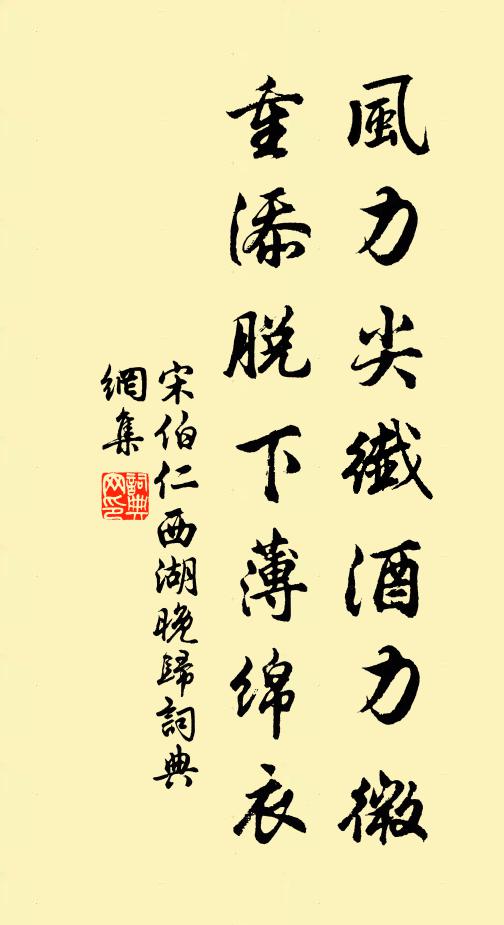 風力尖纖酒力微
重添脱下薄綿衣
宋伯仁西湖晚歸詞典
網集
詞典
网印